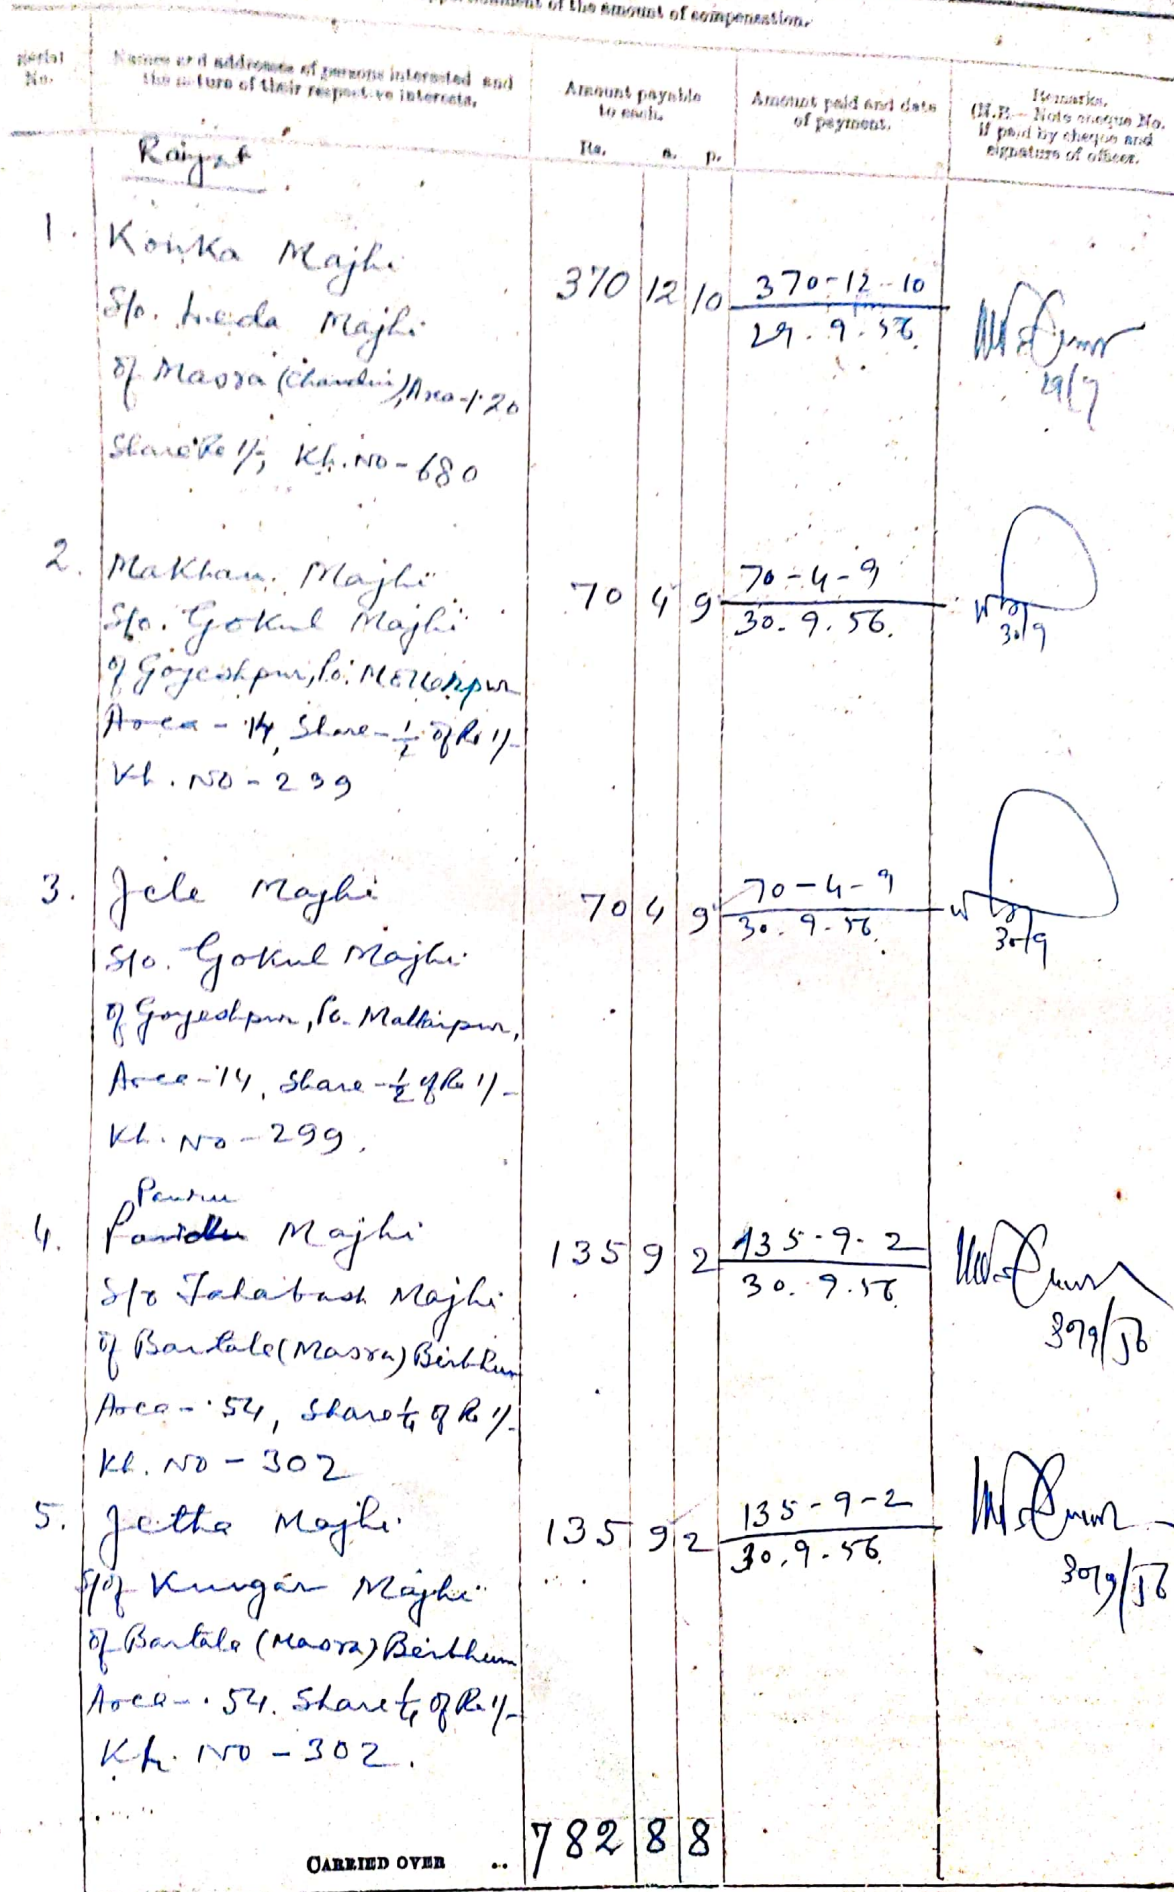 of the amount of compensation.
Serial No.
Names and addresses of persons interested and the nature of their respective interests.
Amount payable to each.
Rs. a. p.
Amount paid and date of payment.
Remarks.
(N.B.— Note cheque No. if paid by cheque and signature of officer.
Raiyat
1. Konka Majhi
S/o. Leda Majhi
of Masra (Chandni), Area - 1.20
Share Re 1/-, Kh. No - 680
370 12 10
370-12-10
29. 9. 56.
29/9
2. Makhan Majhi
S/o. Gokul Majhi
of Gogeshpur, Po. Mallarpur
Area - .14, Share - 1/2 of Re 1/-
Kh. No - 299
70 4 9
70-4-9
30. 9. 56.
30/9
3. Jele Majhi
S/o. Gokul Majhi
of Gogeshpur, Po. Mallarpur,
Area - .14, Share - 1/2 of Re 1/-
Kh. No - 299.
70 4 9
70-4-9
30. 9. 56.
30/9
4. Majhi
S/o Majhi
of Bartala (Masra) Birbhum
Area - .54, Share 1/4 of Re 1/-
Kh. No - 302
135 9 2
135-9-2
30. 9. 56.
30/9/56
5. Jetha Majhi
S/of Kungar Majhi
of Bartala (Masra) Birbhum
Area - .54. Share 1/4 of Re 1/-
Kh. No - 302.
135 9 2
135-9-2
30. 9. 56.
30/9/56
CARRIED OVER .. 782 8 8